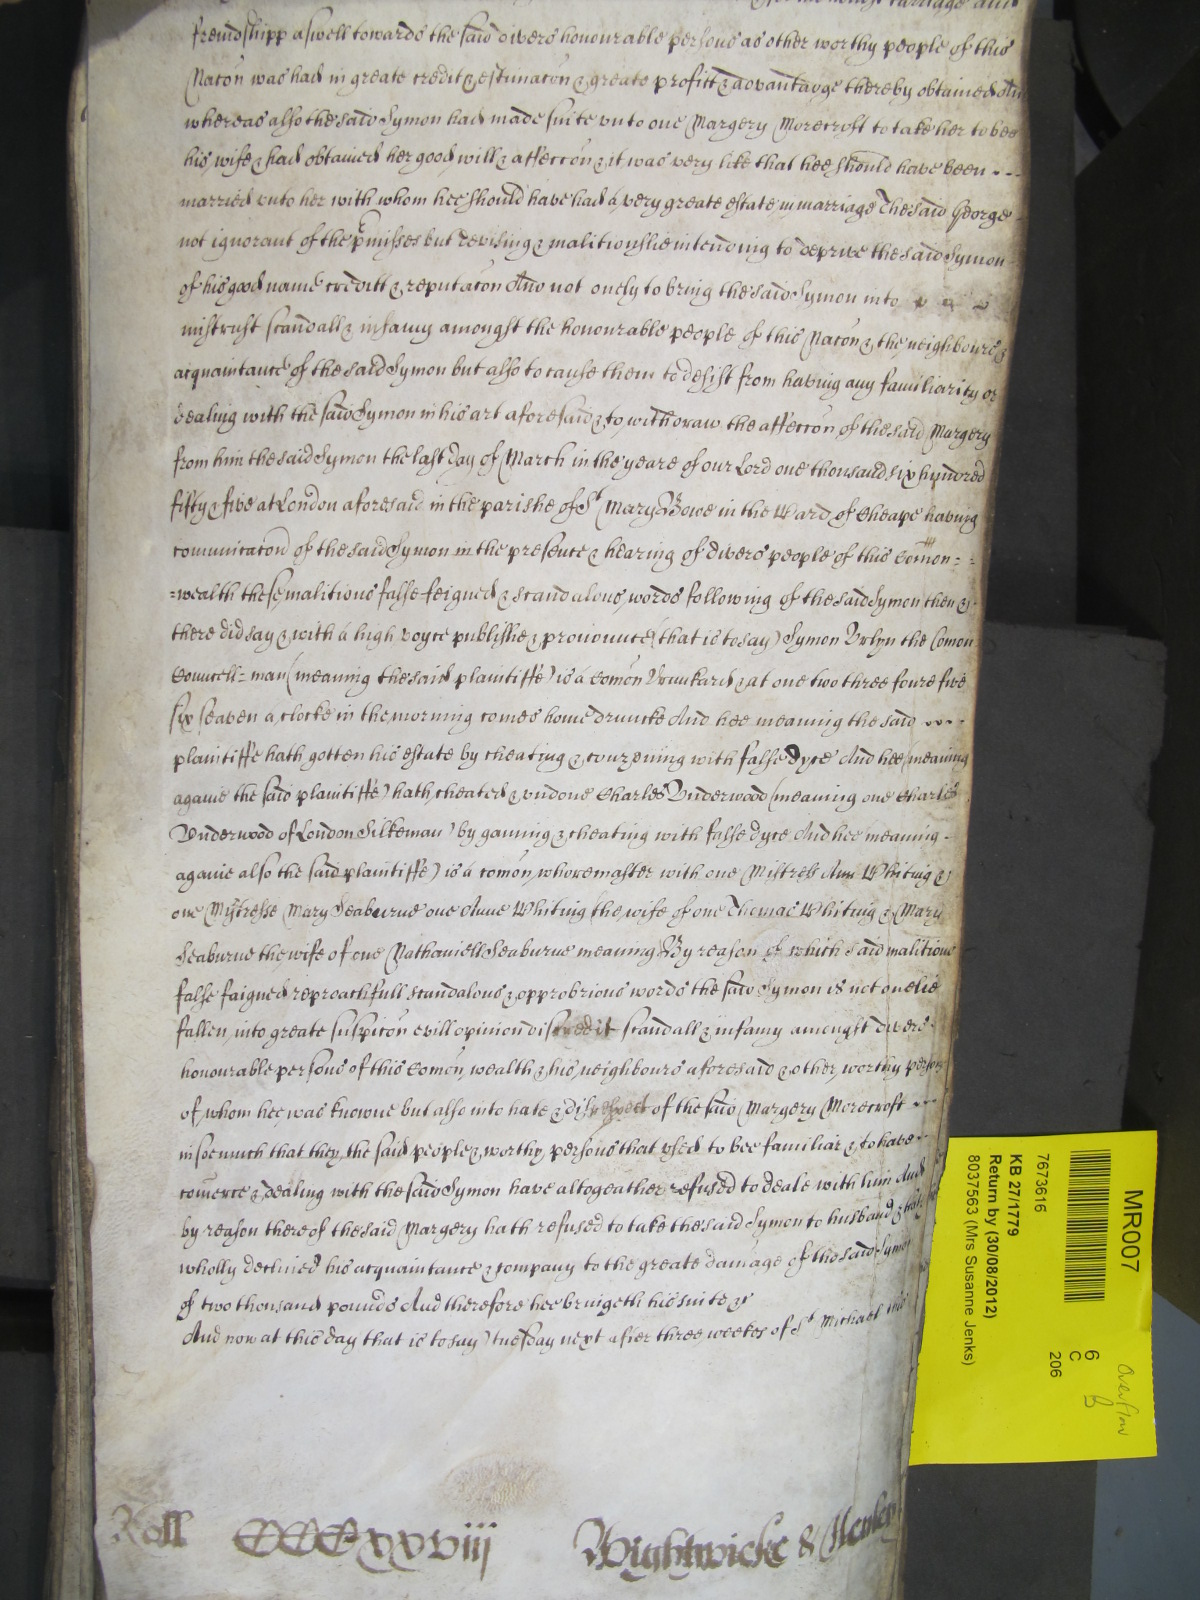 frendshipp aswell towards the said divers honourable persons as other worthy people of this
Nacon was had in greate credit & estimacon & greate profitt & advantage thereby obtained And
whereas also the said Symon had made suite unto one Margery Morecroft to take her to bee
his wife & had obtained her good will & affeccon & it was very like that hee should have been
married unto her with whom hee should have had a very greate estate in marriage The said George
not ignorant of the pmisses but devising & malitiouslie intending to deprive the said Symon
of his good name creditt & reputacon And not onely to bring the said Symon into
mistrust scandall & infamy amongst the honourable people of this Nacon & the neighbours &
acquaintance of the said Symon but also to cause them to desist from having any familiarity or
dealing with the said Symon in his art aforesaid & to withdraw the affeccon of the said Margery
from him the said Symon the last day of March in the yeare of our Lord one thousand six hundred
fifty & five at London aforesaid in the parishe of St Mary Bowe in the Ward of Cheape having
comunicacon of the said Symon in the presence & hearing of divers people of this Comon=
=wealth these malitious false feigned & scandalous words following of the said Symon then &
there did say & with a high voyce publishe & pronounce (that is to say) Symon Urlyn the Comon
Councell=man (meaning the said plaintiffe) is a Comon Drunkard & at one two three foure five
six seaven a clocke in the morning comes home druncke And hee meaning the said
plaintiffe hath gotten his estate by cheating & couzening with false dyce And hee (meaning
againe the said plaintiffe) hath cheated & undone Charles Underwood (meaning one Charles
Underwood of London Silkeman) by gaming & cheating with false dyce And hee meaning
againe also the said plaintiffe) is a comon whoremaster with one Mistress Ann Whiting &
one Mistresse Mary Seaburne one Anne Whiting the wife of one Thomas Whiting & Mary
Seaburne the wife of one Nathaniell Seaburne meaning By reason of which said malitious
false faigned reproachfull scandalous & opprobrious words the said Symon is not onelie
fallen into greate suspicon evill opinion discredit scandall & infamy amongst divers
honourable persons of this Comon wealth & his neighbours aforesaid & other worthy persons
of whom hee was knowne but also into hate & disrespect of the said Margery Morecroft
insoemuch that they the said people & worthy persons that used to bee familiar & to have
comerce & dealing with the said Symon have altogeather refused to deale with him And
by reason thereof the said Margery hath refused to take the said Symon to husband & hath
wholly declined his acquaintance & company to the greate damage of the said Symon
of two thousand pounds And therefore hee bringeth his suite &c
And now at this day that is to say tuesday next after three weekes of St Michael this
Roll CCCCxxviij Wightwicke & Henley
MR007
7673616
KB 27/1779
Return by (30/08/2012)
8037563 (Mrs Susanne Jenks)
6
C
206
Overflow
B